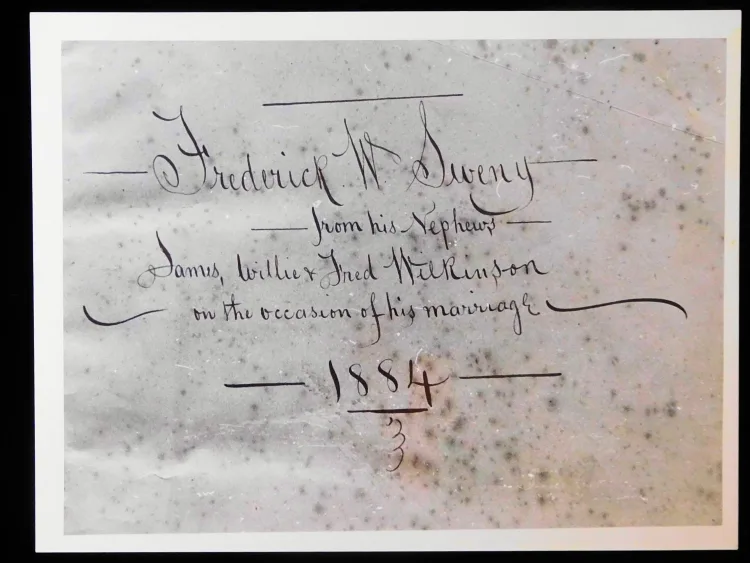 Frederick W Sweny
from his Nephews
James, Willie & Fred Wilkinson
on the occasion of his marriage
1884